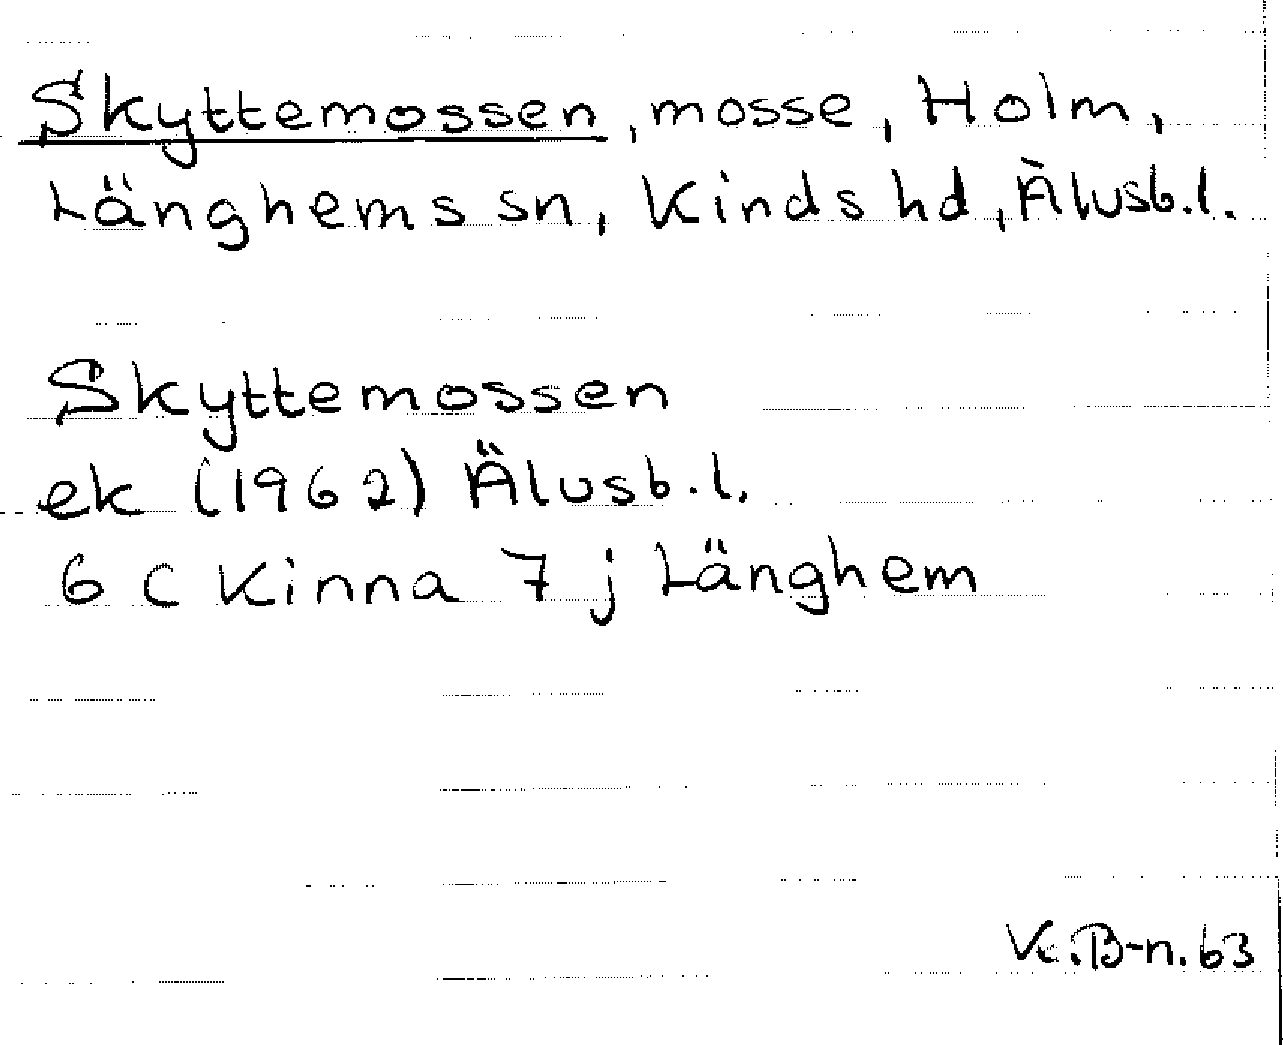 Skyttemossen, mosse, Holm,
Länghems sn, Kinds hd, Älvsb.l.
Skyttemossen
ek (1962) Älvsb.l.
6 C Kinna 7 j Länghem
Ve.B-n.63